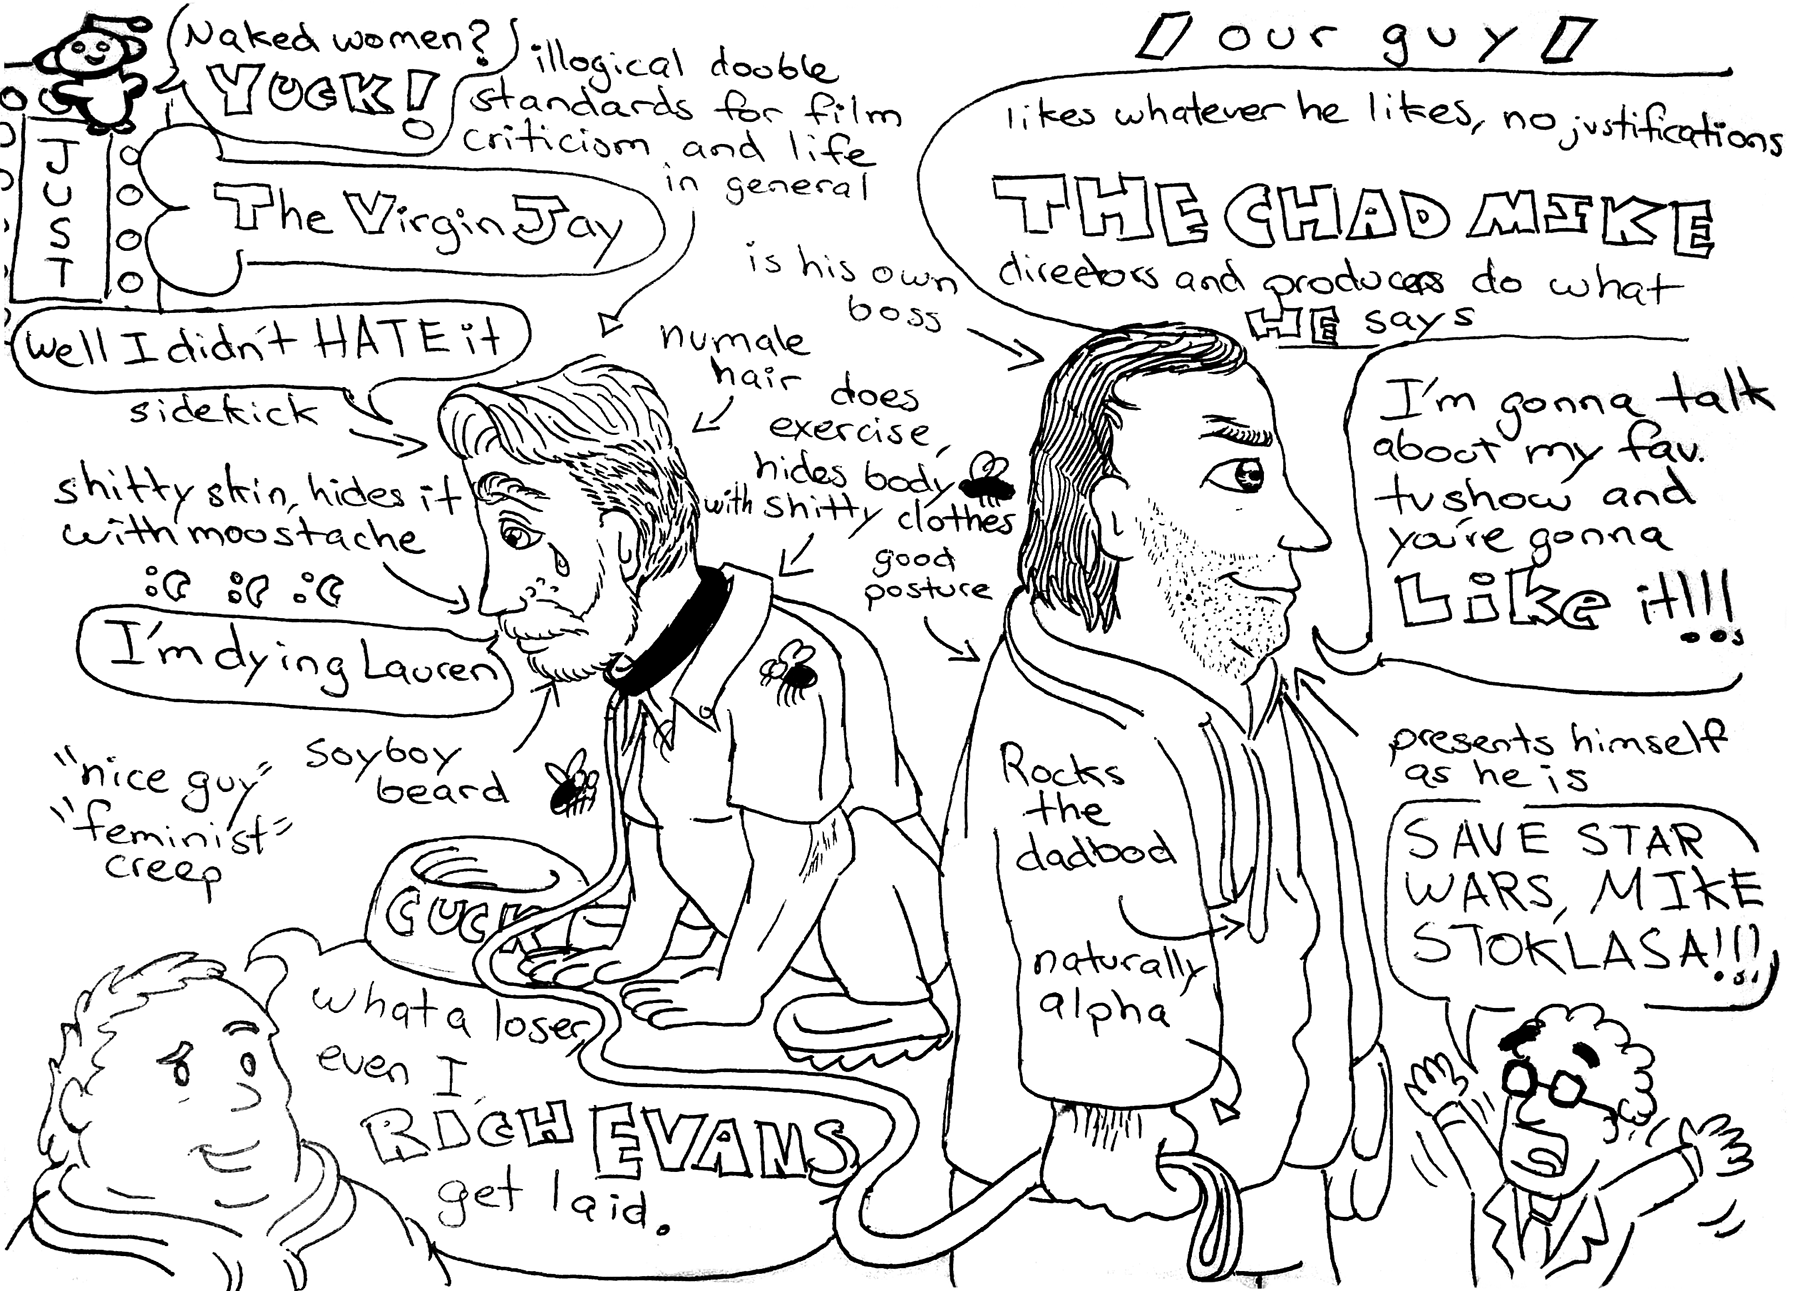 Naked women?
YUCK!
illogical dooble
standards for film
criticism and life
in general
JUST
The Virgin Jay
Well I didn't HATE it
sidekick
numale
hair
does
exercise,
hides body
with shitty clothes
shitty skin, hides it
with moostache
:C :C :C
I'm dying Lauren
soyboy
beard
"nice guy"
"feminist"
creep
CUCK
what a loser,
even I,
RICH EVANS
get laid.
▯ our guy ▯
likes whatever he likes, no justifications
THE CHAD MIKE
directors and producers do what
HE says
is his own
boss
I'm gonna talk
about my fav.
tvshow and
you're gonna
Like it!!!
good
posture
presents himself
as he is
Rocks
the
dadbod
naturally
alpha
SAVE STAR
WARS, MIKE
STOKLASA!!!